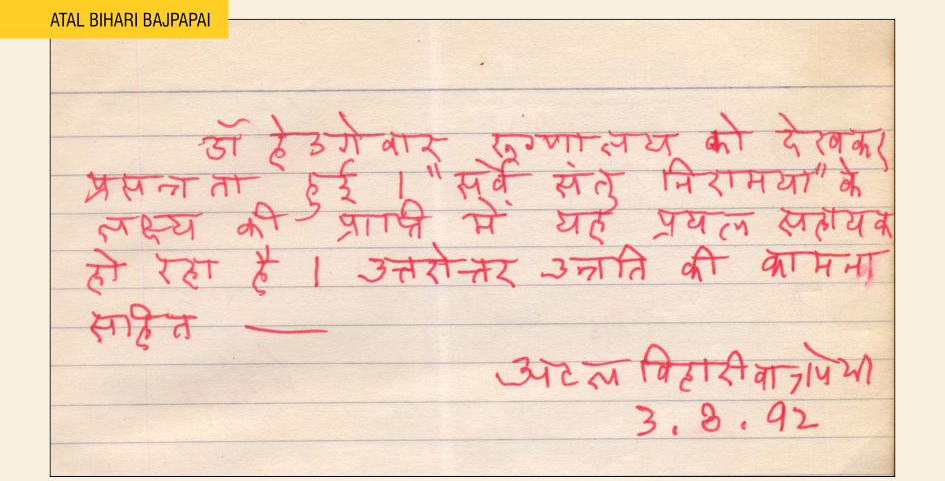 ATAL BIHARI BAJPAPAI
डॉ हेडगेवार रुग्णालय को देखकर
प्रसन्नता हुई । "सर्वे संतु निरामया" के
लक्ष्य की प्राप्ति में यह प्रयत्न सहायक
हो रहा है । उत्तरोत्तर उन्नति की कामना
सहित ——
अटल बिहारी वाजपेयी
3.8.92